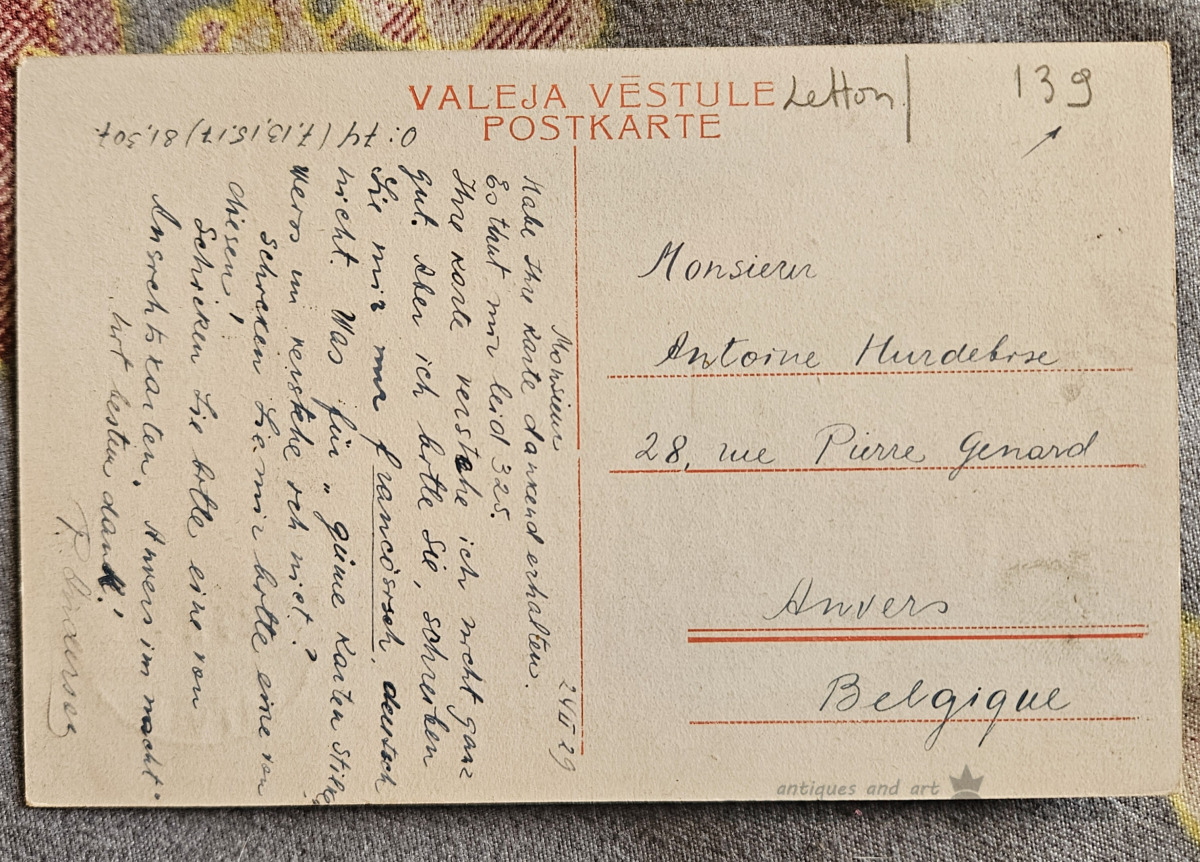 VALEJA VĒSTULE
POSTKARTE
Letton
139
0:74 (7,13,15,17) 81,307
Monsieur
24 II 29
Habe Ihre Karte dankend erhalten.
Es thut mir leid 325.
Ihre Karte verstehe ich nicht ganz
gut. Aber ich bitte Sie, schreiben
Sie mir nur francösisch, deutsch
nicht. Was für „ grüne Karten Stils
Veros un verstehe ich nict?
Schicken Sie mir bitte eine von
diesen!
Schicken Sie bitte eine von
Ansichtskarten. Anvers im nacht.
Mit besten dank!
Monsieur
Antoine Hurdebise
28, rue Pierre Genard
Anvers
Belgique
antiques and art